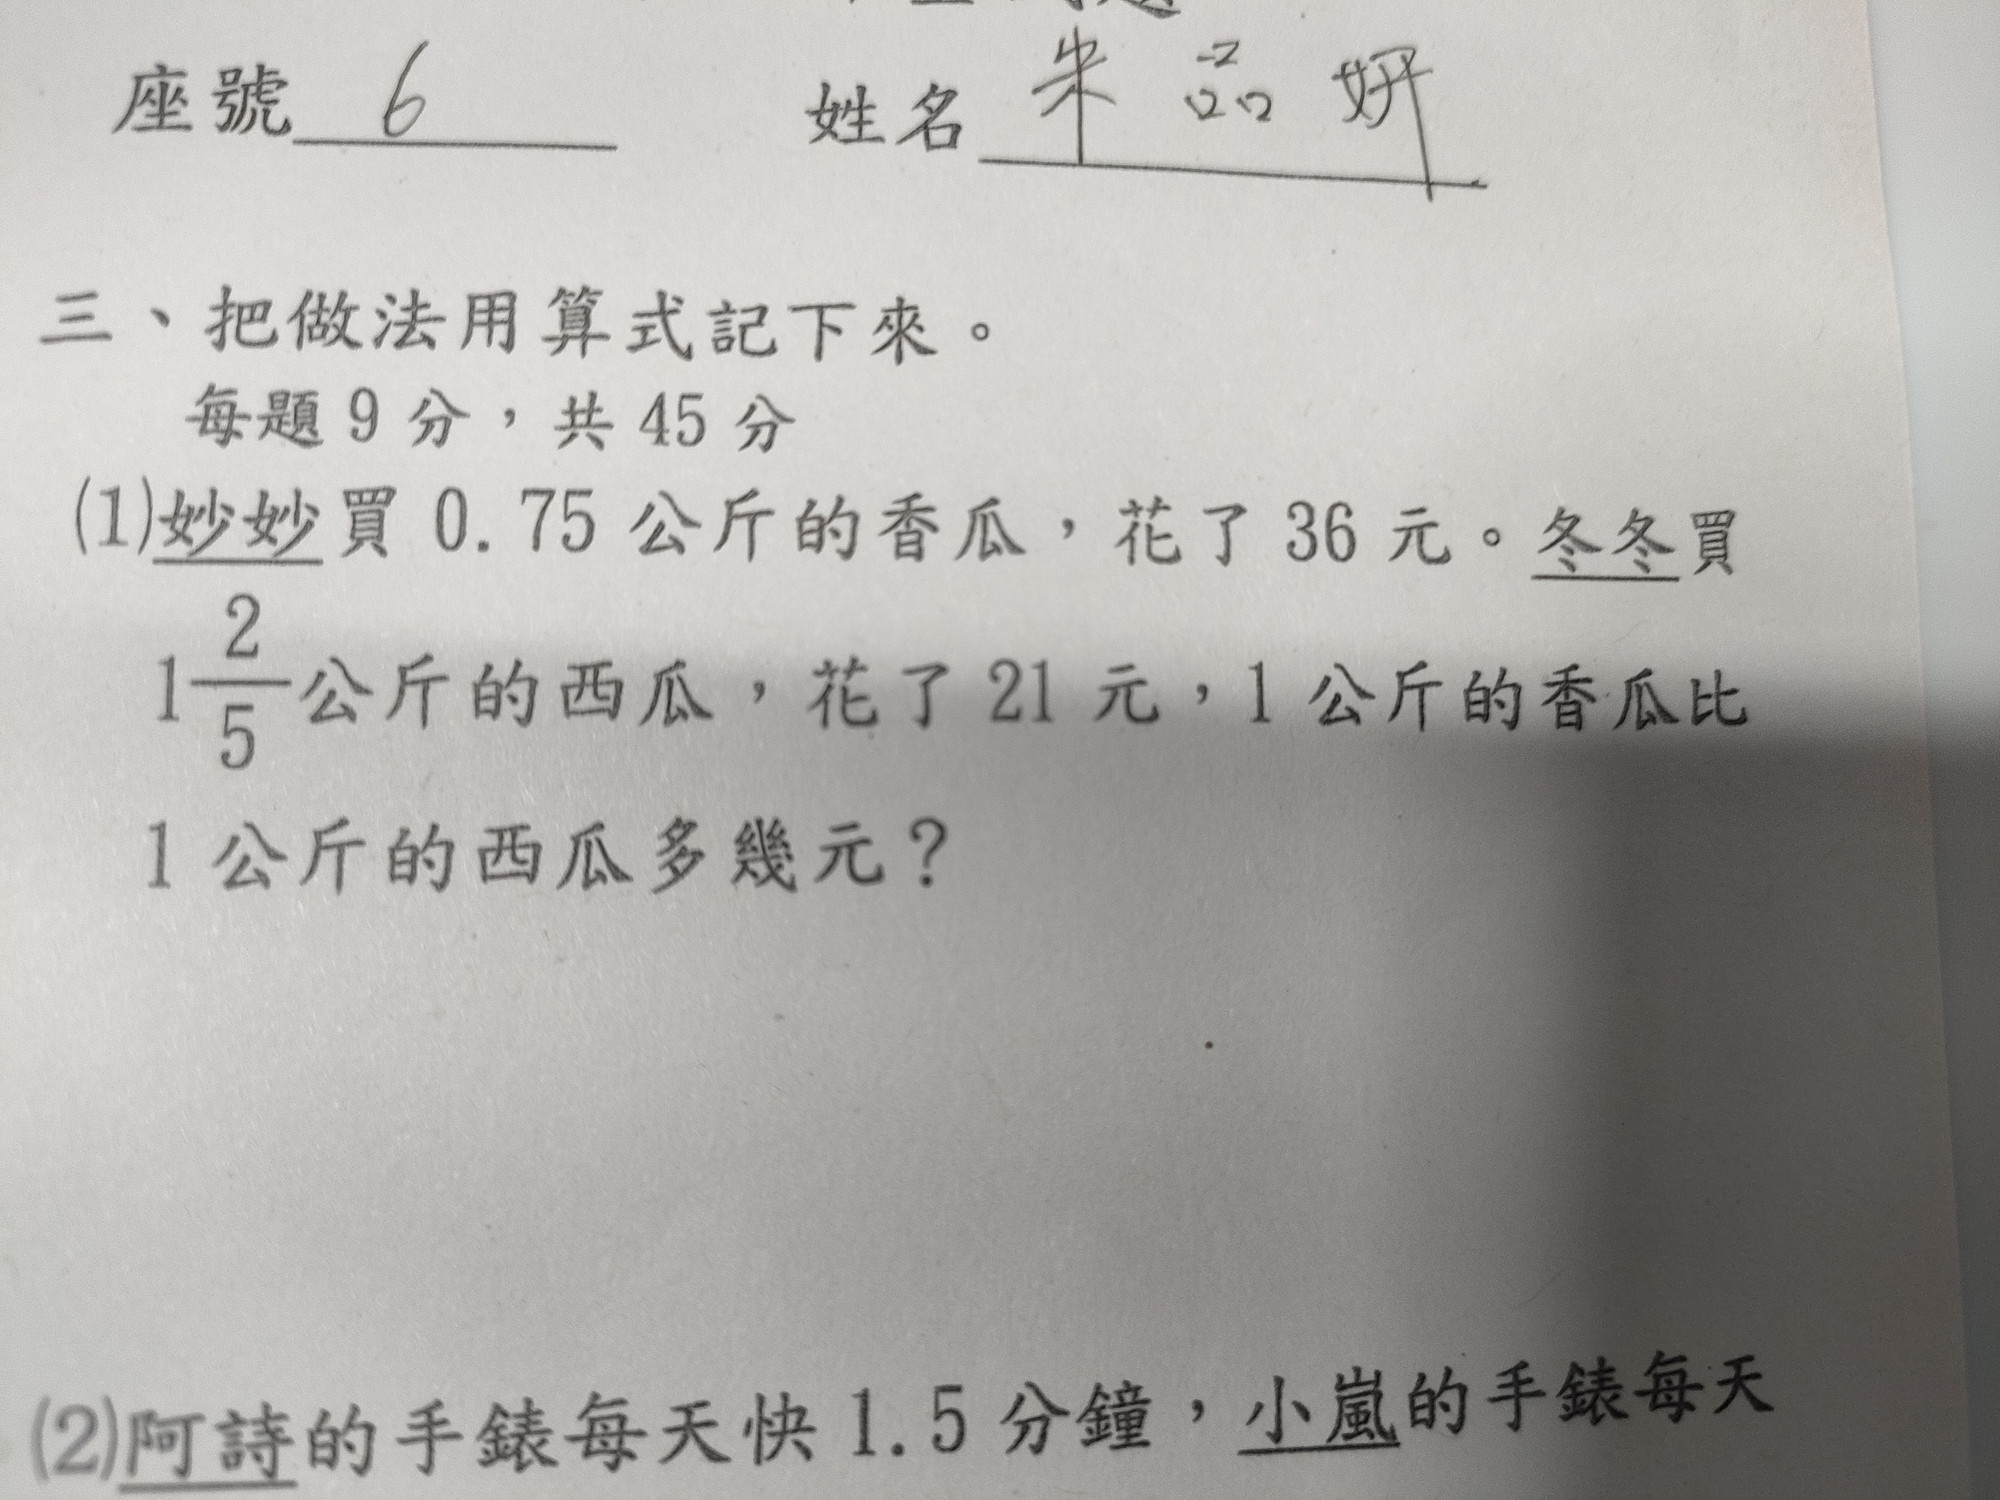 座號 6 姓名 朱品妍
三、把做法用算式記下來。
每題9分，共45分
(1)妙妙買 0.75 公斤的香瓜，花了 36 元。冬冬買
1 2/5 公斤的西瓜，花了 21 元，1 公斤的香瓜比
1 公斤的西瓜多幾元？
(2)阿詩的手錶每天快 1.5 分鐘，小嵐的手錶每天